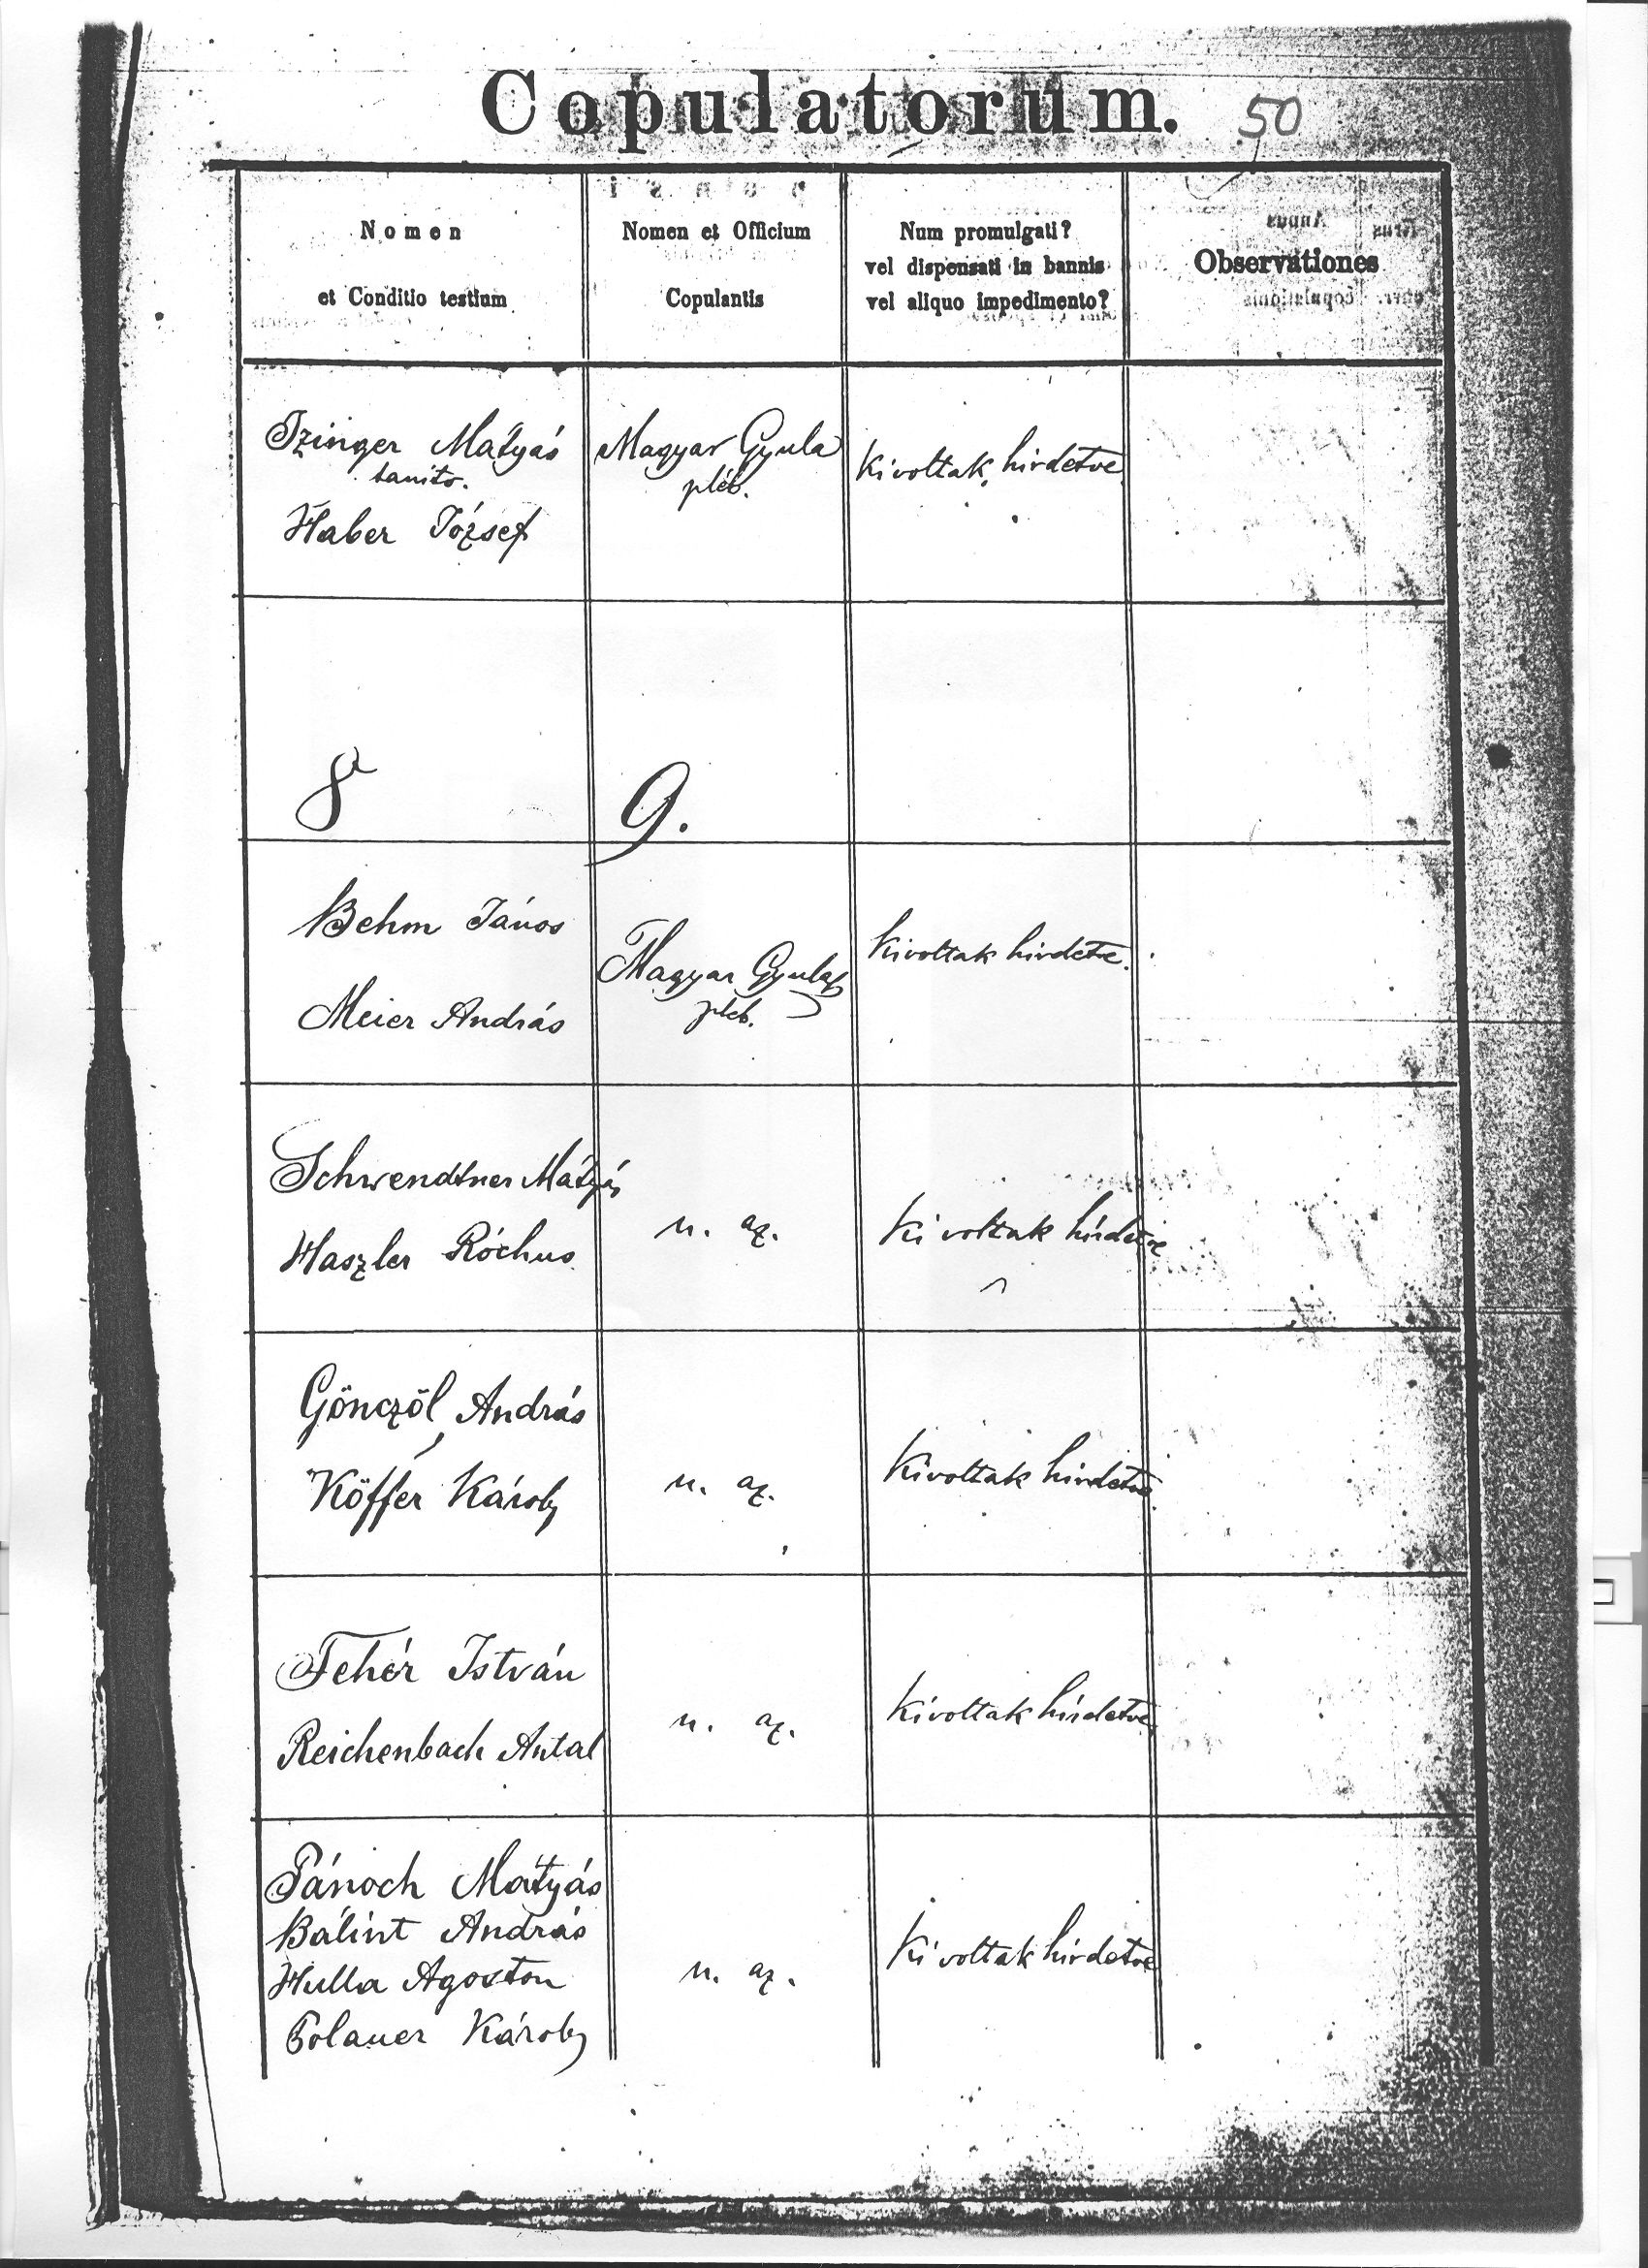 Copulatorum. 50
Nomen
et Conditio testium
Nomen et Officium
Copulantis
Num promulgati?
vel dispensati in bannis
vel aliquo impedimento?
Observationes
Izinger Mátyás
tanito.
Haber József
Magyar Gyula
pléb.
Kivoltak hirdetve
8 9.
Behm János
Meier András
Magyar Gyula
pleb.
Kivoltak hirdetve.
Schwendtner Mátyás
Haszler Róchus
u. az.
Ki voltak hirdetve
Gönczöl András
Köffer Károly
u. az.
Kivoltak hirdetve.
Fehér István
Reichenbach Antal
u. az.
Kivoltak hirdetve
Pánoch Mátyás
Bálint András
Hulla Agoston
Polauer Károly
u. az.
Ki voltak hirdetve